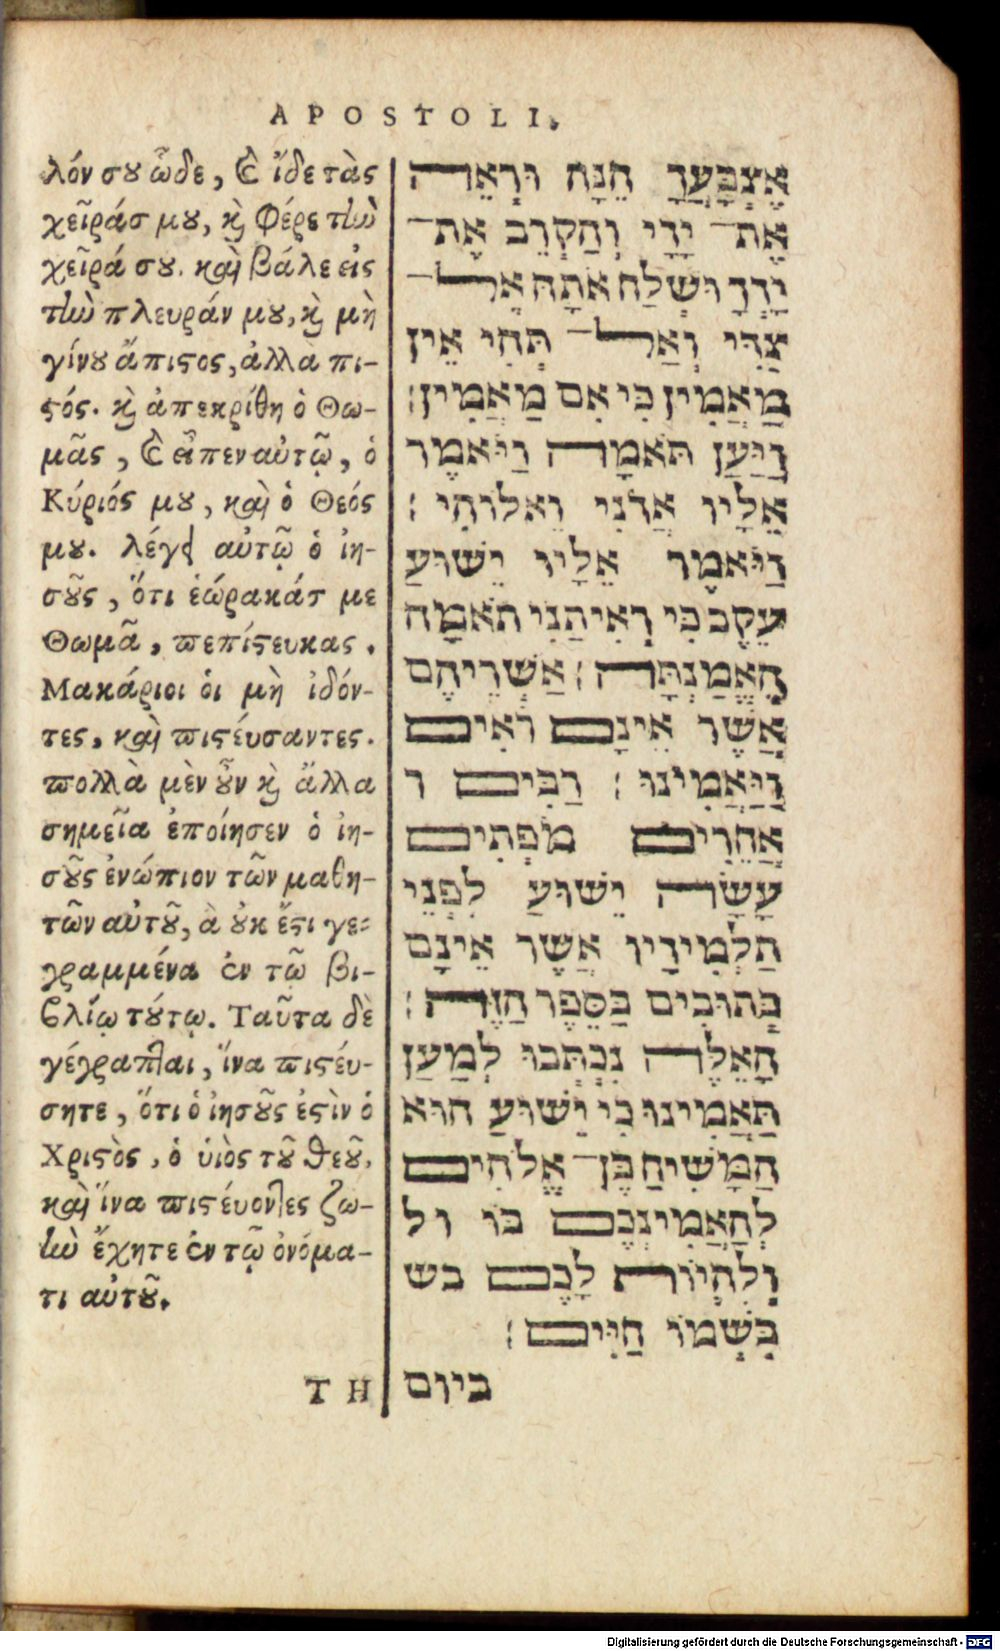 APOSTOLI.
λόν σȣ ὧδε, ϗ̀ ἴδε τὰς
χεῖράς μȣ, ϗ̀ φέρε τὴν
χεῖρά σȣ. καὶ βάλε εἰς
τὴν πλευράν μȣ, ϗ̀ μὴ
γίνȣ ἄπιϛος, ἀλλὰ πι-
ϛός. ϗ̀ ἀπεκρίθη ὁ Θω-
μᾶς, ϗ̀ εἶπεν αὐτῷ, ὁ
Κύριός μȣ, καὶ ὁ Θεός
μȣ. λέγει αὐτῷ ὁ ἰη-
σȣ͂ς, ὅτι ἑώρακάς με
Θωμᾶ, πεπίϛευκας.
Μακάριοι ὁι μὴ ἰδόν-
τες, καὶ πιϛέυσαντες.
πολλὰ μὲν ȣ̓͂ν ϗ̀ ἄλλα
σημεῖα ἐποίησεν ὁ ἰη-
σȣ͂ς ἐνώπιον τῶν μαθη-
τῶν αὐτȣ͂, ἃ ȣ̓κ ἔϛι γε-
γραμμένα ἐν τῷ βι-
βλίῳ τȣ́τῳ. Ταῦτα δὲ
γέγραπται, ἵνα πιϛέυ-
σητε, ὅτι ὁ ἰησȣ͂ς ἐϛὶν ὁ
Χριϛὸς, ὁ ὑιὸς τȣ͂ θεȣ͂,
καὶ ἵνα πιϛέυοντες ζω-
ὴν ἔχητε ἐν τῷ ὀνόμα-
τι αὐτȣ͂.
ΤΗ
אֶצְבָּעֲךָ הֵנָּה וּרְאֵה
אֶת־ יָדָי וְהַקְרֵב אֶת־
יָדְךָ וּשְׁלַח אֹתָהּ אֶל־
צִדִּי וְאַל־ תְּהִי אֵין
מַאֲמִין כִּי אִם מַאֲמִין׃
וַיַּעַן תֹּאמָה וַיֹּאמֶר
אֵלָיו אֲדֹנִי וֵאלוֹהִי׃
וַיֹּאמֶר אֵלָיו יֵשׁוּעַ
עֵקֶב כִּי רְאִיתַנִי תֹאמָה
הֶאֱמַנְתָּה׃ אַשְׁרֵיהֶם
אֲשֶׁר אֵינָם רֹאִים
וַיַּאֲמִינוּ׃ רַבִּים ו
אֲחֵרִים מֹפְתִים
עָשָׂה יֵשׁוּעַ לִפְנֵי
תַלְמִידָיו אֲשֶׁר אֵינָם
כְּתוּבִים בַּסֵּפֶר הַזֶּה׃
הָאֵלֶּה נִכְתְּבוּ לְמַעַן
תַּאֲמִינוּ כִּי יֵשׁוּעַ הוּא
הַמָּשִׁיחַ בֶּן־ אֱלֹהִים
לְהַאֲמִינְכֶם בּוֹ ול
וְלִהְיוֹת לָכֶם בש
בִּשְׁמוֹ חַיִּים׃
ביום
Digitalisierung gefördert durch die Deutsche Forschungsgemeinschaft - DFG